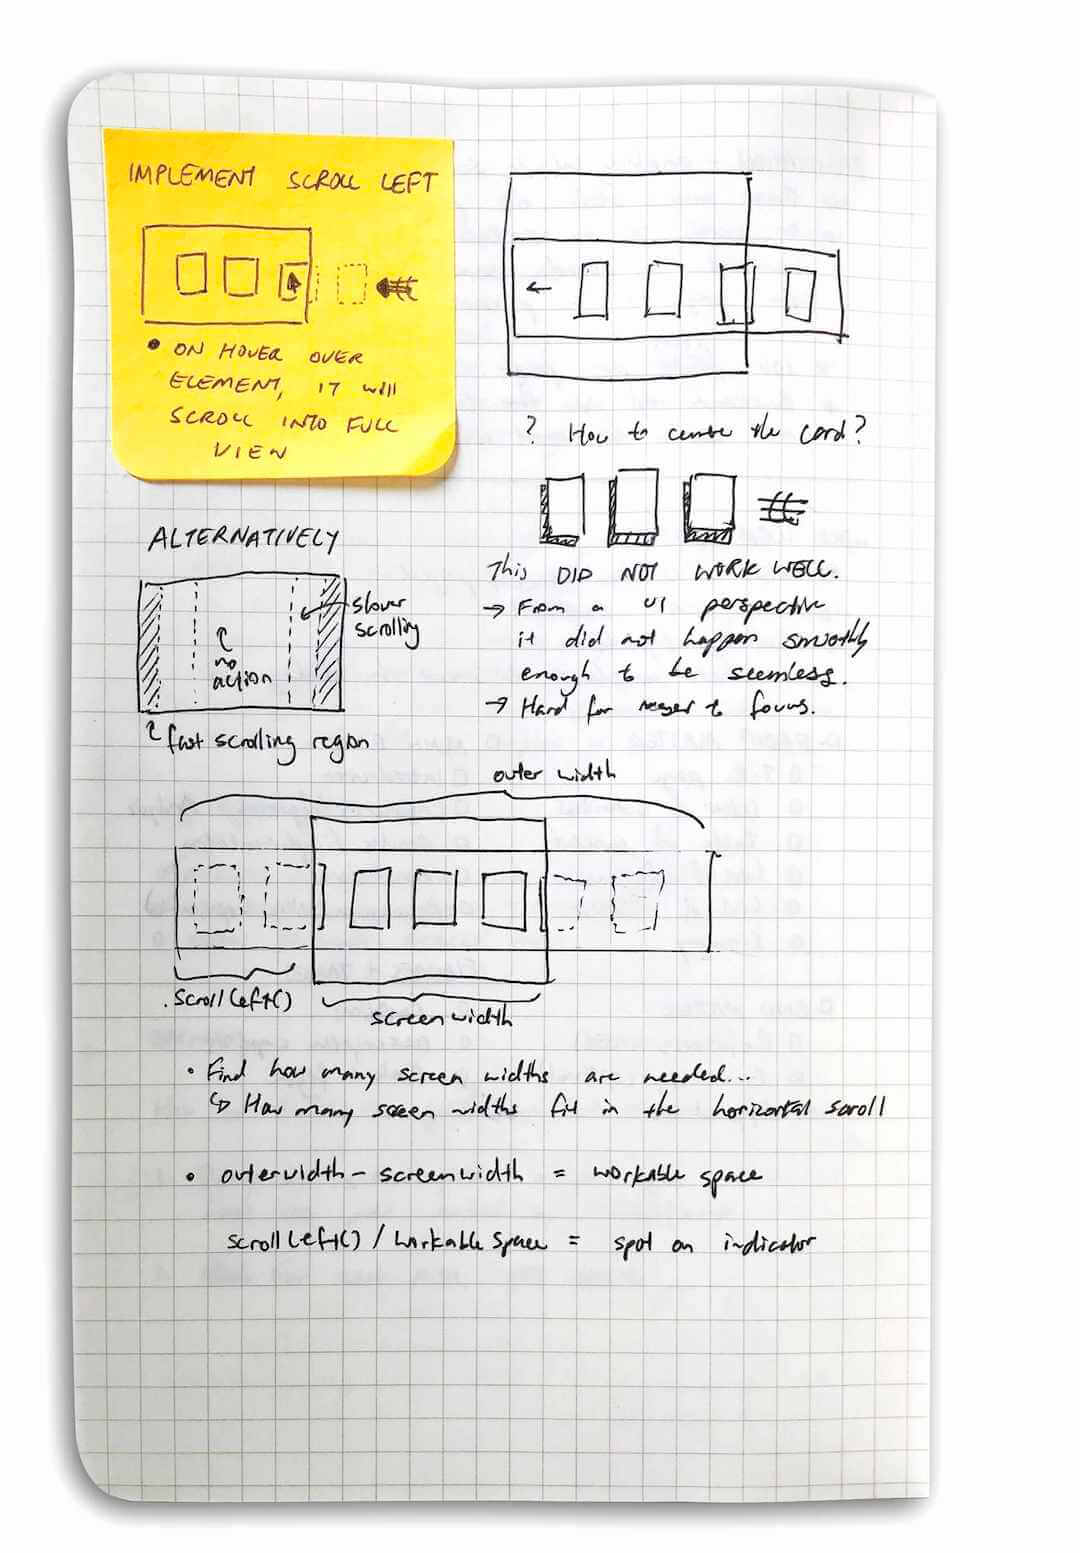 IMPLEMENT SCROLL LEFT
• ON HOVER OVER
ELEMENT, IT will
SCROLL INTO FULL
VIEW
? How to centre the card?
This DID NOT WORK WELL.
→ From a UI perspective
it did not happen smoothly
enough to be seemless.
→ Hard for to focus.
ALTERNATIVELY
slower
scrolling
no
action
fast scrolling region
outer width
.scrollLeft()
screen width
• Find how many screen widths are needed...
↳ How many screen widths fit in the horizontal scroll
• outerwidth - screenwidth = workable space
scrollLeft() / workable space = spot on indicator